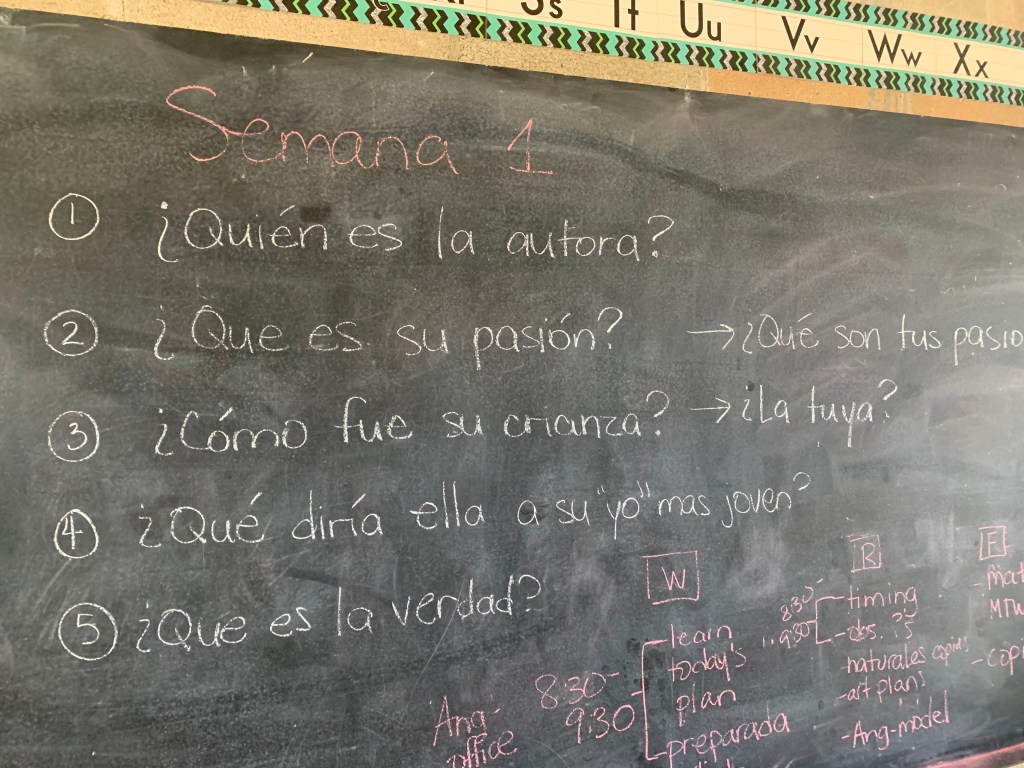 Ss Tt Uu Vv Ww Xx
Semana 1
① ¿Quién es la autora?
② ¿Que es su pasión? → ¿Qué son tus pasio
③ ¿Cómo fue su crianza? → ¿La tuya?
④ ¿Qué diría ella a su "yo" mas joven?
⑤ ¿Que es la verdad?
Ang-
office
W
8:30-
9:30
-learn
today's
plan
-preparada
R
8:30-
9:30
-timing
naturales
-art plans
-Ang-model
F